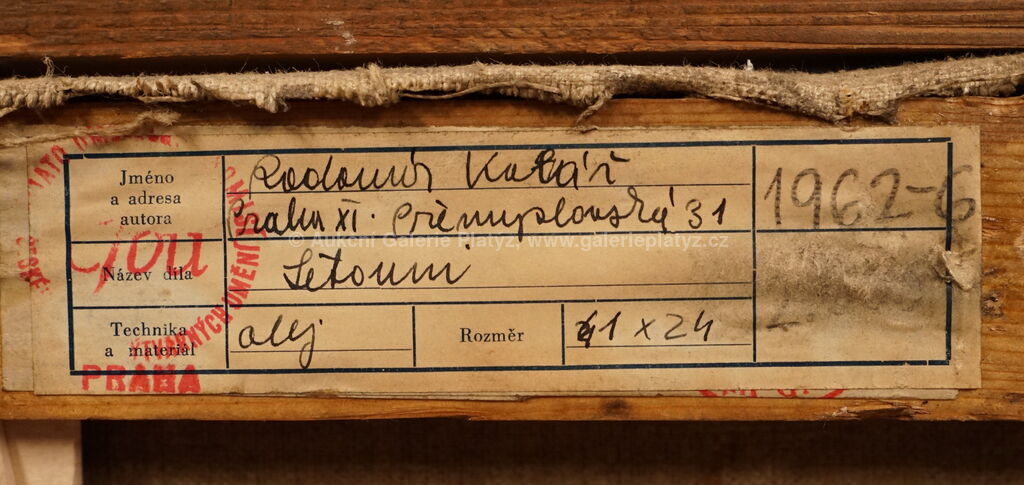 Jméno
a adresa
autora
Radomír Kolář
Praha XI. Přemyslovská 31
1962-6
© Aukční Galerie Platýz, www.galerieplatyz.cz
Název díla
Technika
a materiál
olej
Rozměr
41 x 24
VÝTVARNÝCH UMĚNÍ
PRAHA